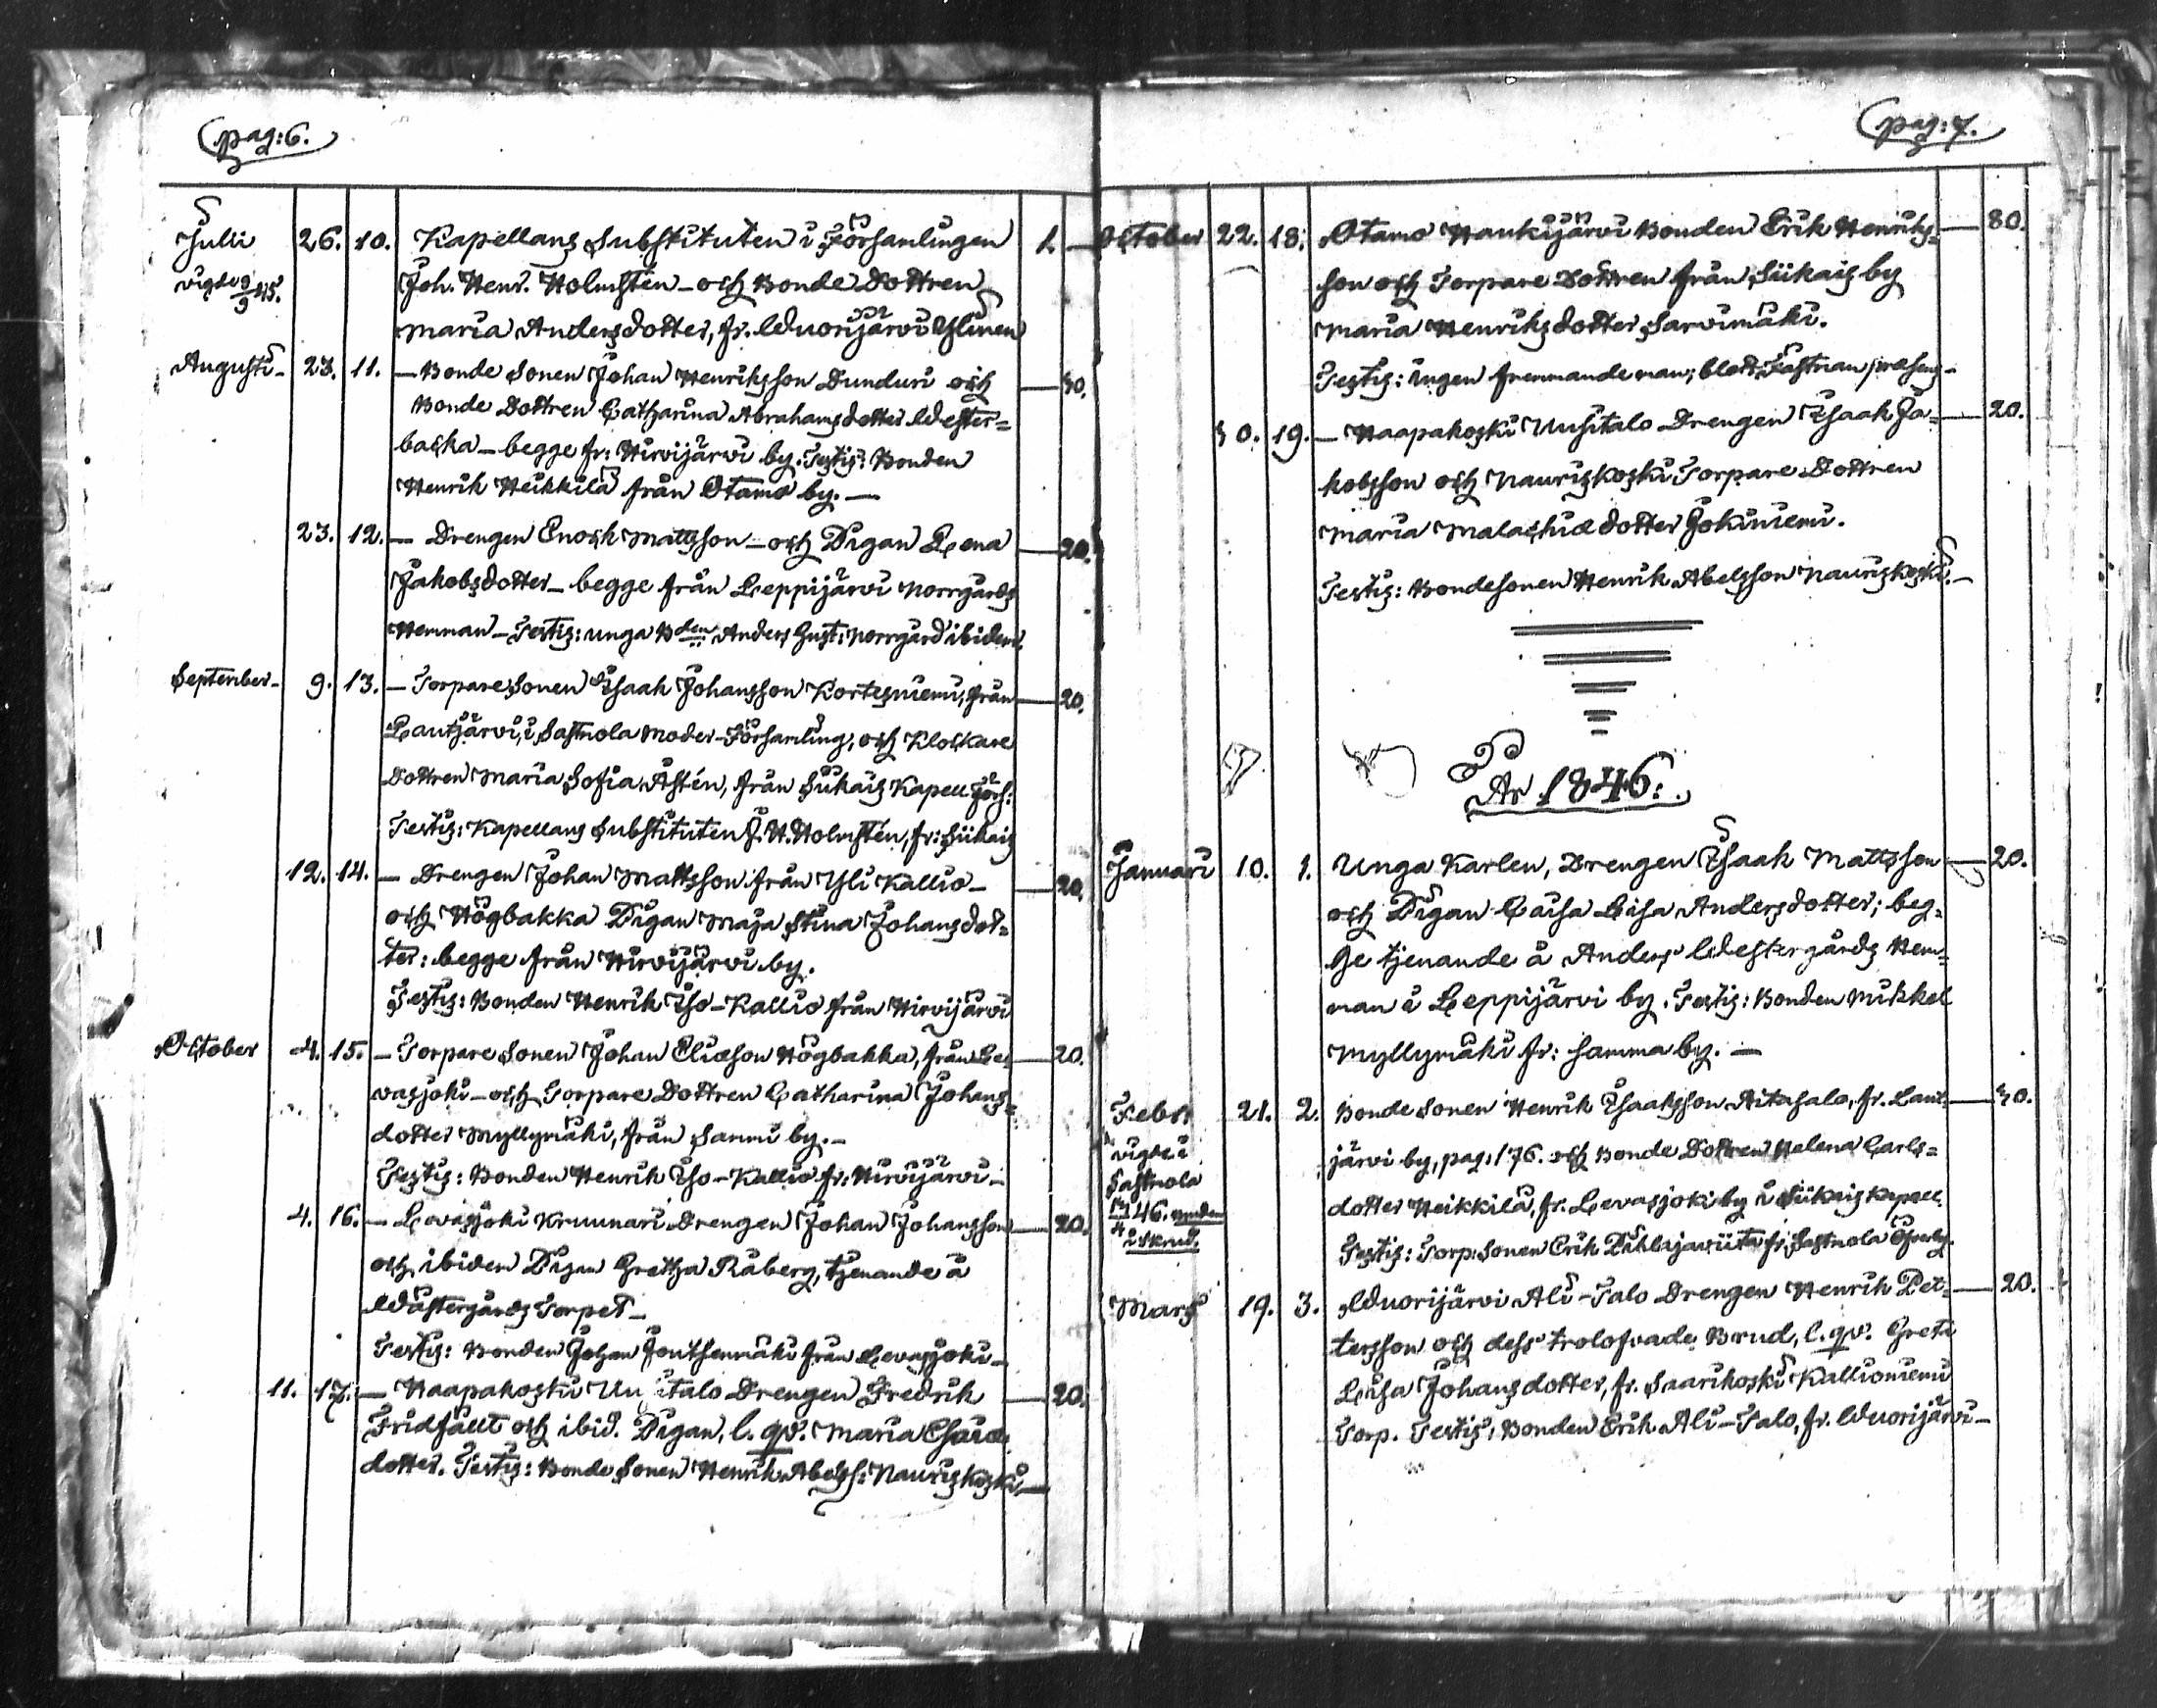 pag: 6.
Juli 26. 10. Kapellans Substituten i Församlingen 1. —
vigde 9/9 45. Joh. Henr. Holmstén — och Bonde Dottren
Maria Andersdotter, fr. Wuorijärvi Ylinen
Augusti — 23. 11. — Bonde Sonen Johan Henriksson Dunduri och — 30.
Bonde Dottren Catharina Abrahamsdotter Wester=
backa — begge fr: Hirvijärvi by. Testis: Bonden
Henrik Heikkilä från Otamo by. —
23. 12. — Drengen Enock Mattsson — och Pigan Lena — 20.
Jakobsdotter — begge från Leppijärvi Norrgårds
Hemman — Testis: unga Bden Anders Gust: Norrgård ibidem.
September — 9. 13. — Torpare Sonen Isaak Johansson Kortesniemi, från — 20.
Lautjärvi, i Sastmola Moder-Församling, och Klockare
Dottren Maria Sofia Åstén, från Siikais Kapell Förs:
Testis: Kapellans Substituten J. H. Holmstén, fr: Siikais
12. 14. — Drengen Johan Mattsson från Yli Kallio — — 20.
och Högbakka Pigan Maja Stina Johansdot=
ter: begge från Hirvijärvi by.
Testis: Bonden Henrik Iso-Kallio från Hirvijärvi
October 4. 15. — Torpare Sonen Johan Eliæson Högbakka, från Le= — 20.
vasjoki — och Torpare Dottren Catharina Johans=
dotter Myllymäki, från Sammi by. —
Testis: Bonden Henrik Iso-Kallio fr: Hirvijärvi —
4. 16. — Levasjoki Kruunari Drengen Johan Johansson — 20.
och ibidem Pigan Gretha Råberg, tjenande å
Wästergårds Torpet —
Testis: Bonden Johan Joutsenmäki från Levasjoki —
11. 17. — Haapakoski Uusitalo Drengen Fredrik — 20.
Fridfällt och ibid. Pigan, l. qv. Maria Esaiæ
dotter. Testis: Bonde Sonen Henrik Abelss: Nauriskoski —
pag: 7.
October 22. 18. Otamo Haukijärvi Bonden Erik Henriks= — 80.
son och Torpare Dottren från Siikais by
Maria Henriksdotter Sarvimäki.
Testis: ingen fremmande man; blott Fästman præsens —
30. 19. — Haapakoski Uusitalo Drengen Isaak Ja= — 20.
kobsson och Nauriskoski Torpare Dottren
Maria Malachiæ dotter Jokiniemi.
Testis: Bondesonen Henrik Abelsson Nauriskoski. —
År 1846:
Januari 10. 1. Unga Karlen, Drengen Isaak Mattsson — 20.
och Pigan Caisa Lisa Andersdotter; beg=
ge tjenande å Anders Westergårds Hem=
man i Leppijärvi by. Testis: Bonden Mikkel
Myllymäki fr: samma by. —
Febr: 21. 2. Bonde Sonen Henrik Isaaksson Aitasalo, fr. Laut= — 30.
vigde i järvi by, pag: 176. och Bonde Dottren Helena Carls=
Sastmola dotter Heikkilä, fr. Levasjoki by i Siikais Kapell.
46. Testis: Torp: Sonen Erik Pihlajaviita fr. Sastmola
Mars 19. 3. Wuorijärvi Ali-Talo Drengen Henrik Pet= — 20.
tersson och dess trolofvade Brud, l. qv. Greta
Lisa Johansdotter, fr. Saarikoski Kallioniemi
Torp. Testis: Bonden Erik Ali-Talo, fr. Wuorijärvi —